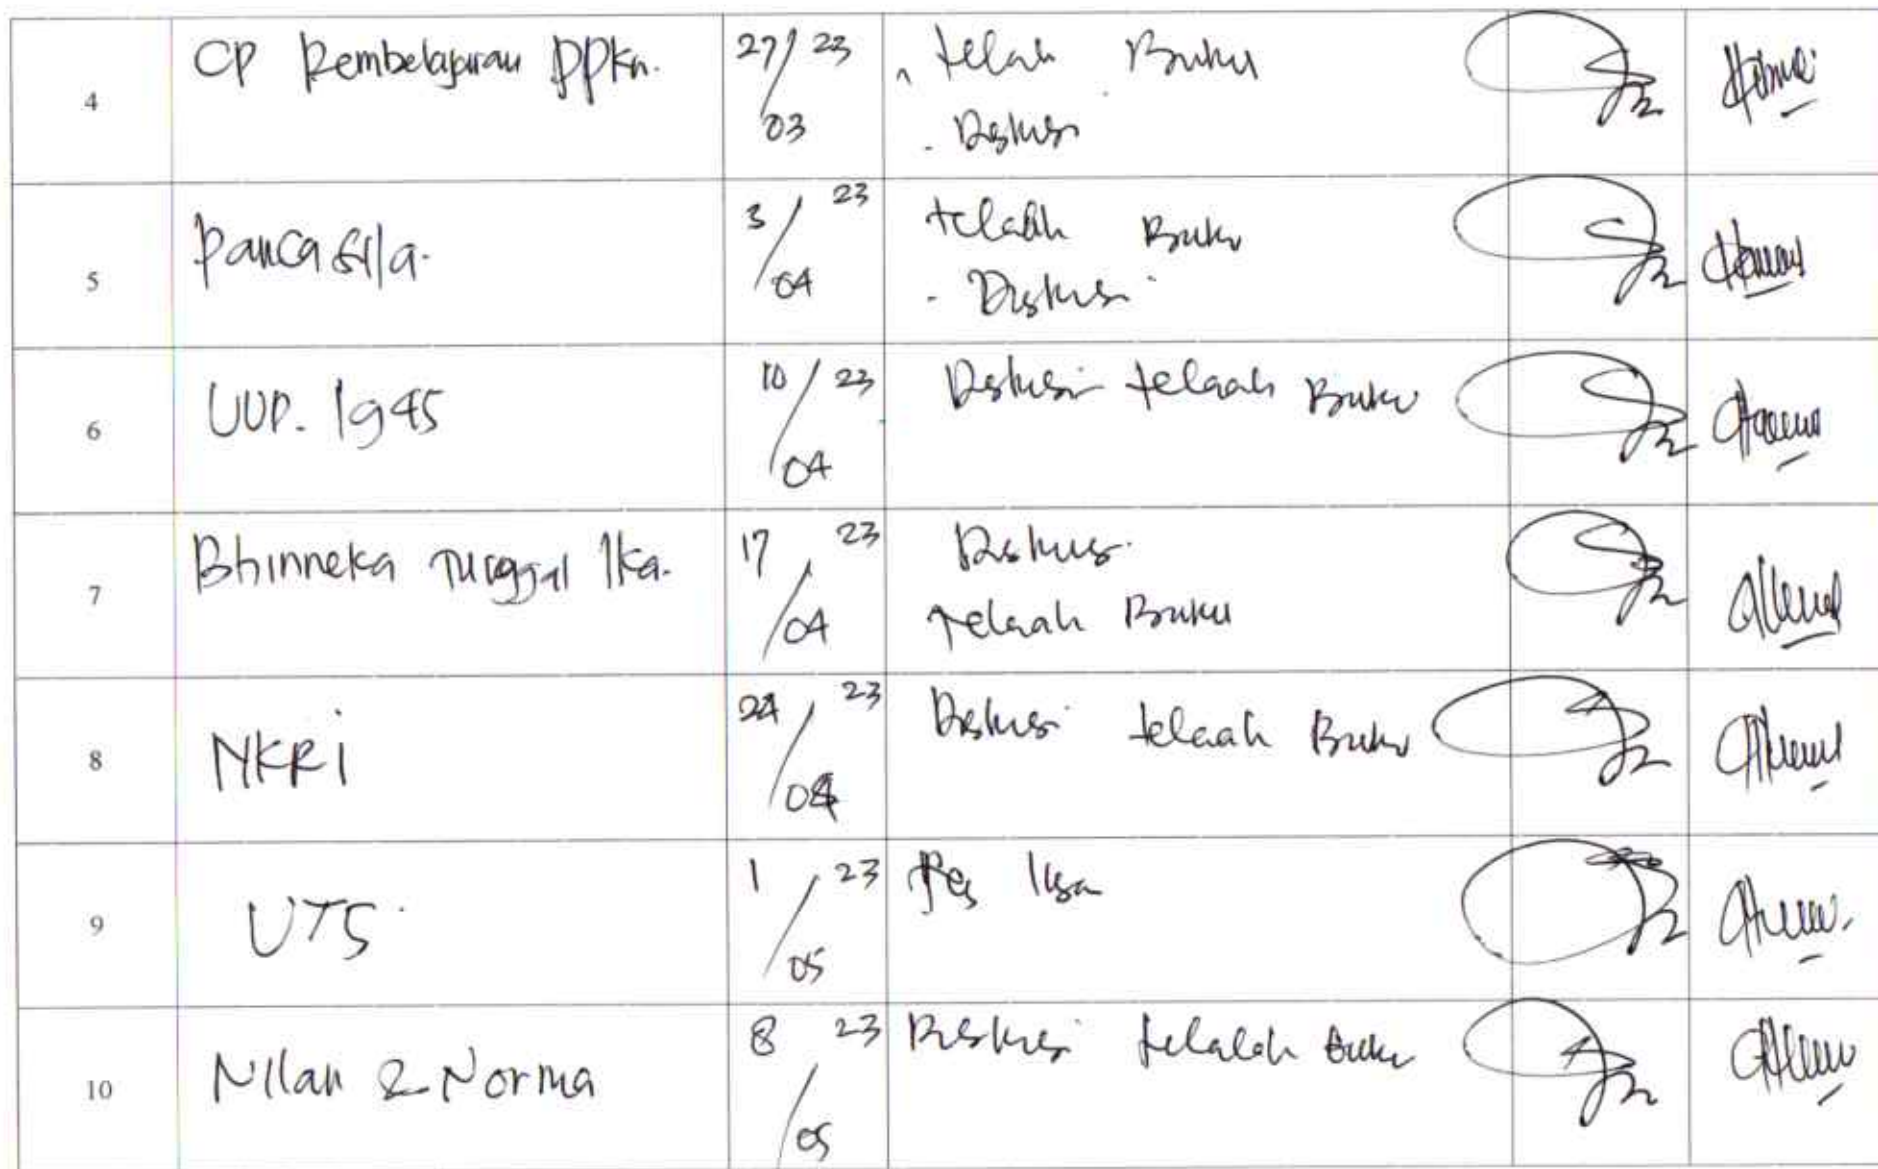 4 CP Pembelajaran PPKn. 27/03 23 telah Buku
- Diskusi
5 Pancasila. 3/04 23 telaah Buku
- Diskusi
6 UUD. 1945 10/04 23 Diskusi telaah Buku
7 Bhinneka Tunggal Ika. 17/04 23 Diskusi
telaah Buku
8 NKRI 24/04 23 Diskusi telaah Buku
9 UTS 1/05 23 Tes lisan
10 Nilai & Norma 8/05 23 Diskusi telaah buku